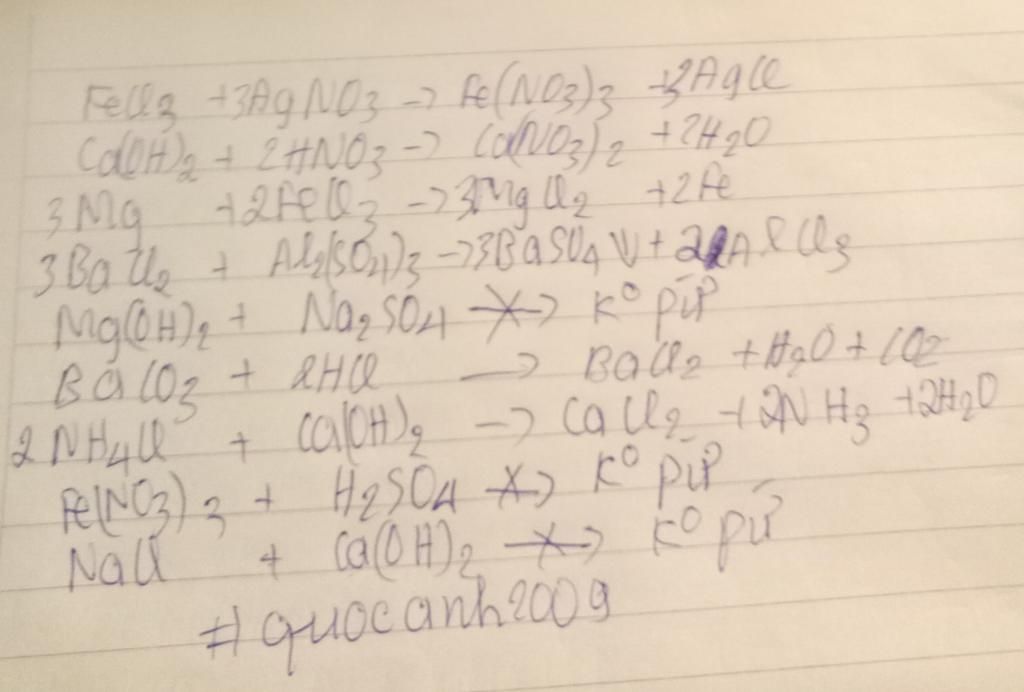 FeCl3 +3AgNO3 -> Fe(NO3)3 +3AgCl
Ca(OH)2 + 2HNO3 -> Ca(NO3)2 +2H2O
3Mg +2FeCl3 -> 3MgCl2 +2Fe
3BaCl2 + Al2(SO4)3 -> 3BaSO4 ↓ + 2AlCl3
Mg(OH)2 + Na2SO4 -X-> K° pứ
BaCO3 + 2HCl -> BaCl2 + H2O + CO2
2NH4Cl + Ca(OH)2 -> CaCl2 +2NH3 +2H2O
Fe(NO3)3 + H2SO4 -X-> K° pứ
NaCl + Ca(OH)2 -X-> K° pứ
#quocanh2009